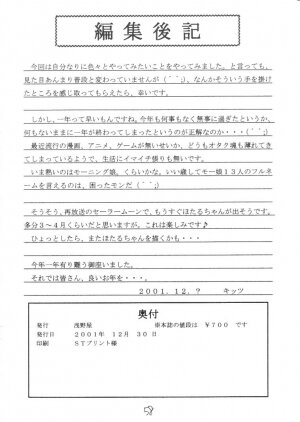 編集後記
今回は自分なりに色々とやってみたいことをやってみました。と言っても、
見た目あんまり普段と変わっていませんが（＾＾；）、なんかそういう手を掛け
たところを感じ取ってもらえたら、幸いです。
しかし、一年って早いもんですね。今年も何事もなく無事に過ぎたというか、
何もないままに一年が終わってしまったというのが正解なのか・・・（＾＾；）
最近流行の漫画、アニメ、ゲームが無いせいか、どうもオタク魂も薄れてき
てしまっているようで、生活にイマイチ張りも無いです。
いま熱いのはモーニング娘。くらいかな。いい歳してモー娘１３人のフルネ
ームを言えるのは、困ったモンだ（＾＾；）
そうそう、再放送のセーラームーンで、もうすぐほたるちゃんが出そうです。
多分３～４月くらいだと思いますが、これは楽しみです♪
ひょっとしたら、またほたるちゃんを描くかも・・・
今年一年有り難う御座いました。
それでは皆さん、良いお年を・・・。
２００１．１２．？　キッツ
奥付
発行　浅野屋　※本誌の値段は　￥７００　です
発行日　２００１年　１２月　３０日
印刷　ＳＴプリント様
58